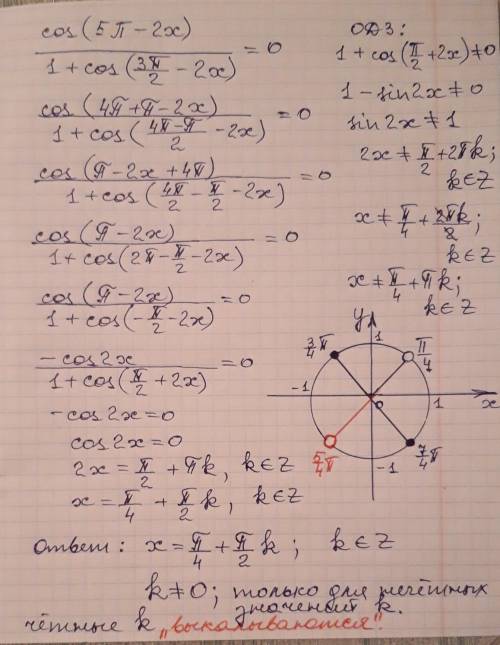 cos(5π-2x) / 1+cos(3π/2-2x) = 0
cos(4π+π-2x) / 1+cos(4π-π/2 -2x) = 0
cos(π-2x+4π) / 1+cos(4π/2-π/2-2x) = 0
cos(π-2x) / 1+cos(2π-π/2-2x) = 0
cos(π-2x) / 1+cos(-π/2-2x) = 0
-cos2x / 1+cos(π/2+2x) = 0
-cos2x=0
cos2x=0
2x=π/2+πk, k∈Z
x=π/4+π/2k, k∈Z
ОДЗ:
1+cos(π/2+2x)≠0
1-sin2x≠0
sin2x≠1
2x≠π/2+2πk;
k∈Z
x≠π/4+2πk/2;
k∈Z
x≠π/4+πk;
k∈Z
y
3/4π
1
π/4
-1
0
1
x
5/4π
-1
7/4π
Ответ: x=π/4+π/2k; k∈Z
k≠0; только для нечётных
значений k.
чётные k „выкалываются".